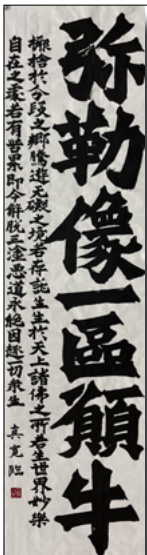 弥勒像一區願牛
橛捨於分段之鄉騰遊无礙之境若存託生生於天上諸佛之所若生世界妙樂
自在之處若有苦累即令解脫三塗惡道永絕因趣一切衆生
真寬臨